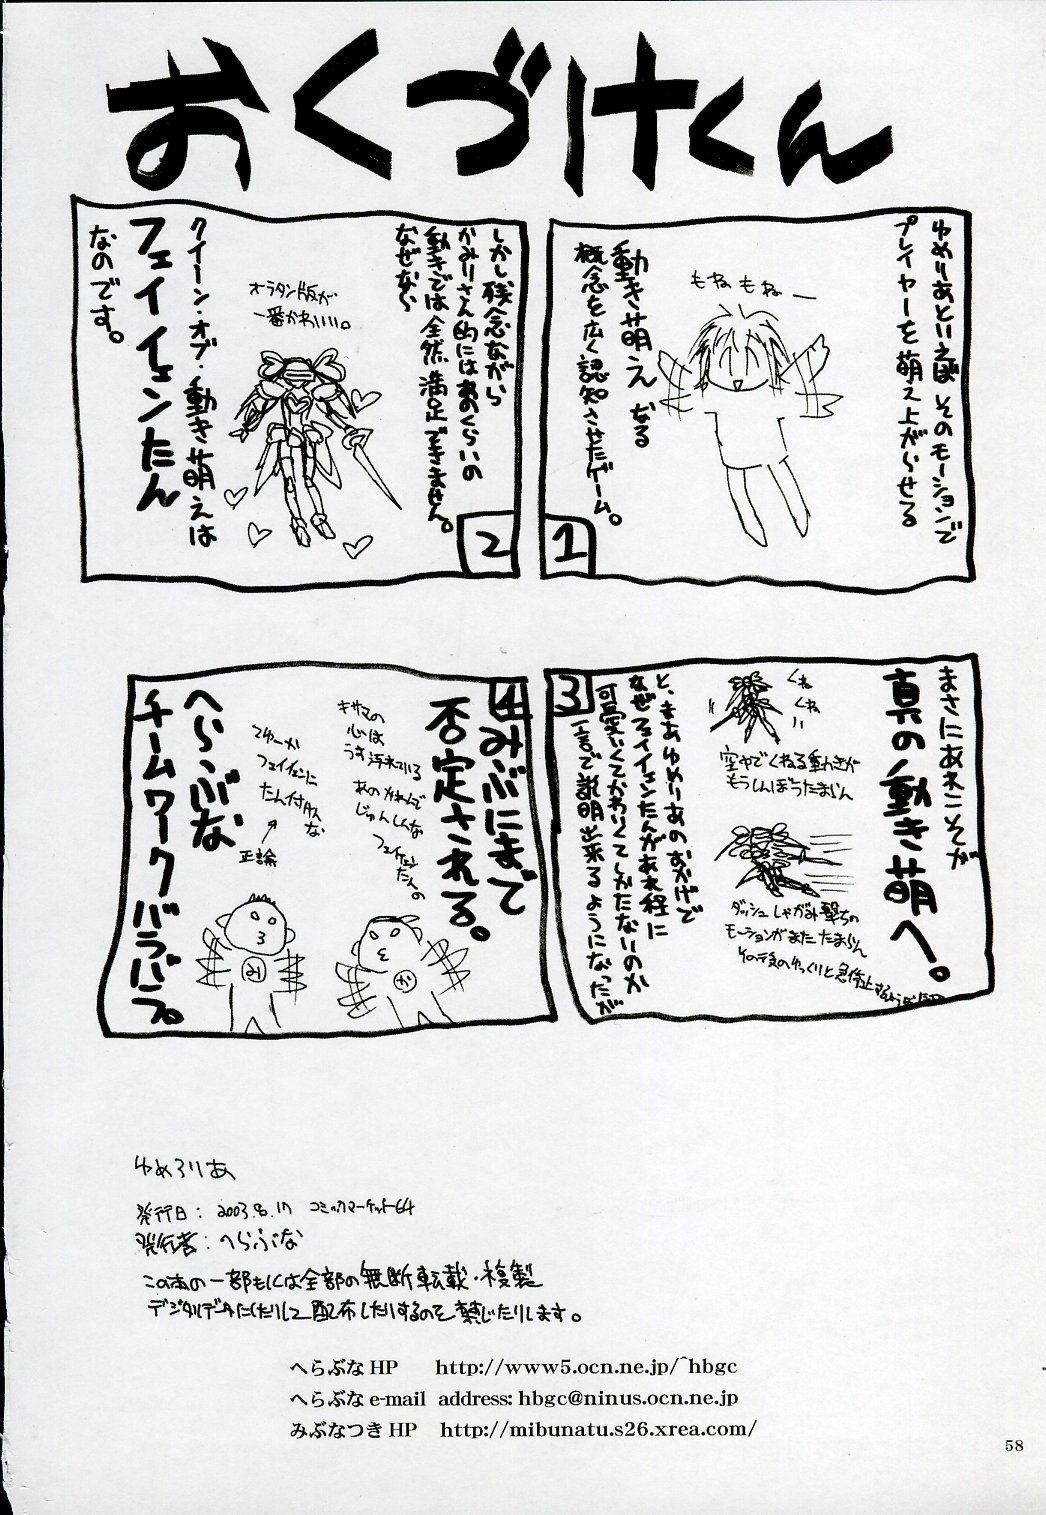 おくづけくん
ゆめりあといえば そのモーションで
プレイヤーを萌え上がらせる
もね もねー
動き萌え なる
概念を広く認知させたゲーム。
1
しかし残念ながら
かみりさん的にはあのくらいの
動きでは全然満足できません。
なぜなら
オラタン版が
一番かわいいい。
クイーン・オブ・動き萌えは
フェイイェンたん
なのです。
2
まさにあれこそが
真の動き萌へ。
くね
くね
空中でくねる動きが
もうしんぼうたまらん
ダッシュしゃがみ撃ちの
モーションがまた たまらん
その後のゆっくりと急停止する
と、まあゆめりあのおかげで
なぜフェイイェンたんがあれ程に
可愛いくてかわいくてしかたないのか
一言で説明出来るようになったが
3
4
みぶにまで
否定される。
キサマの
心は
うす汚れている
あの かれんで
じゅんしんな
フェイイェンたんの
てゆーか
フェイイェンに
たん付けんな
正論
へらぶな
チームワークバラバラ。
ゆめろりあ
発行日: 2003.8.17 コミックマーケット64
発行者: へらぶな
この本の一部もしくは全部の無断転載・複製
デジタルデータにしたりして配布したりするのを禁じたりします。
へらぶなHP http://www5.ocn.ne.jp/~hbgc
へらぶなe-mail address: hbgc@ninus.ocn.ne.jp
みぶなつきHP http://mibunatu.s26.xrea.com/
58